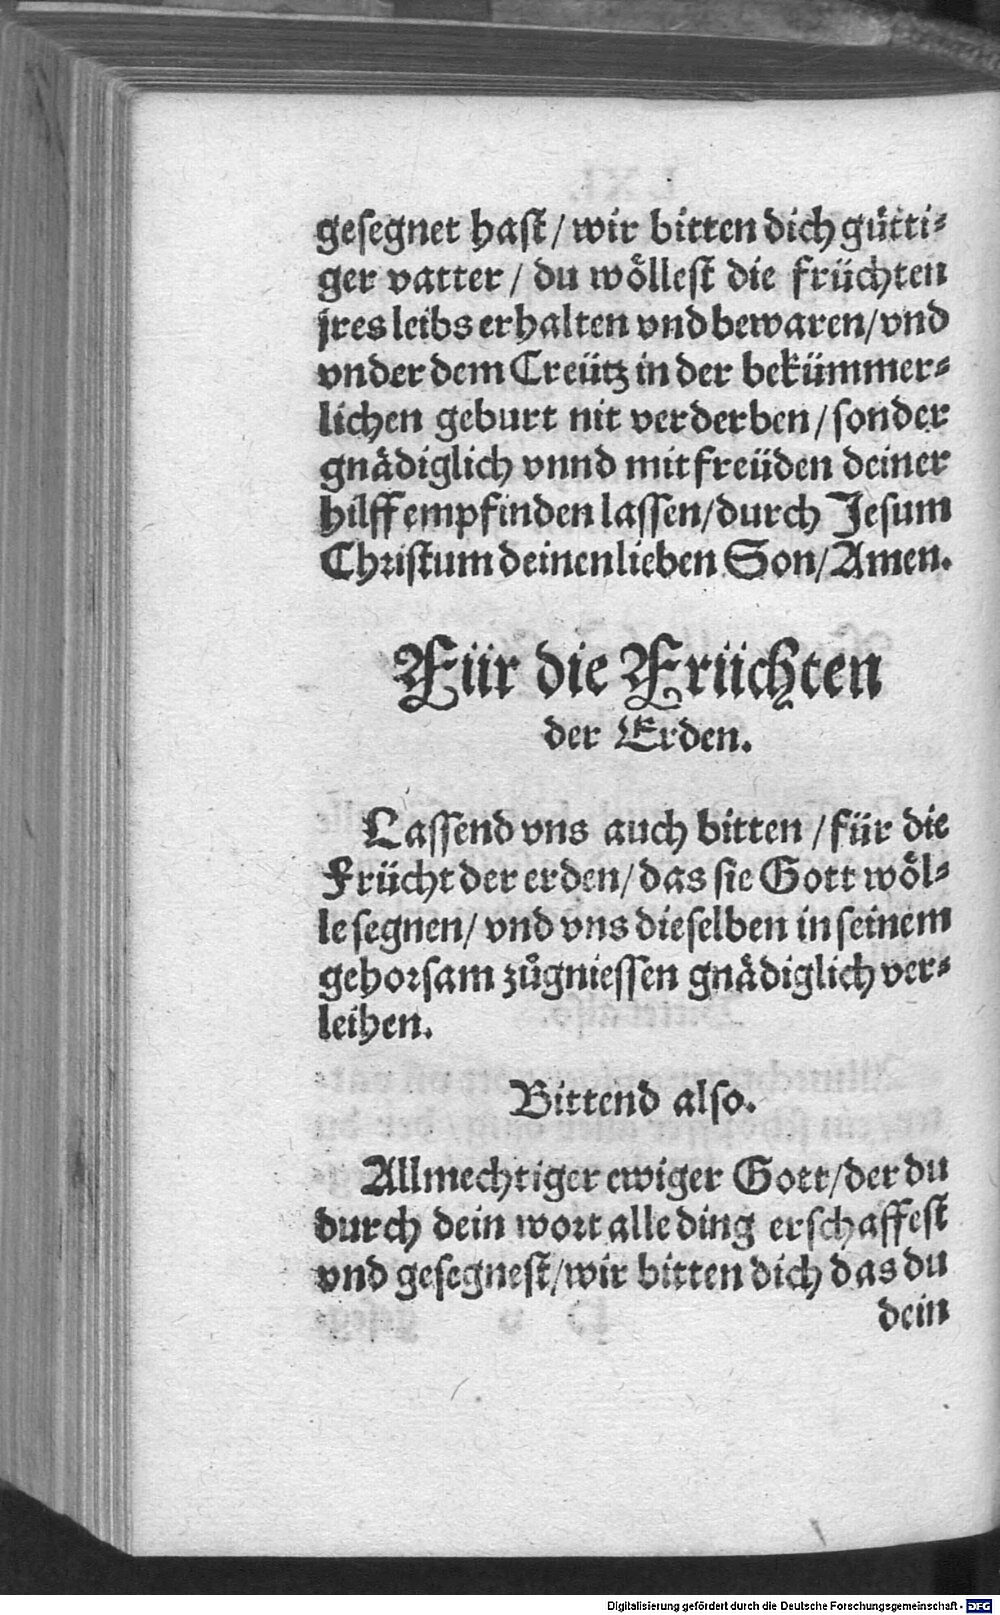 gesegnet hast / wir bitten dich gůtti⸗
ger vatter / du wöllest die früchten
jres leibs erhalten vnd bewaren / vnd
vnder dem Creütz in der bekümmer⸗
lichen geburt nit verderben / sonder
gnädiglich vnnd mit freüden deiner
hilff empfinden lassen / durch Jesum
Christum deinen lieben Son / Amen.
Für die Früchten
der Erden.
Lassend vns auch bitten / für die
Frücht der erden / das sie Gott wöl⸗
le segnen / vnd vns dieselben in seinem
gehorsam zůgniessen gnädiglich ver⸗
leihen.
Bittend also.
Allmechtiger ewiger Gott / der du
durch dein wort alle ding erschaffest
vnd gesegnest / wir bitten dich das du
dein
Digitalisierung gefördert durch die Deutsche Forschungsgemeinschaft - DFG